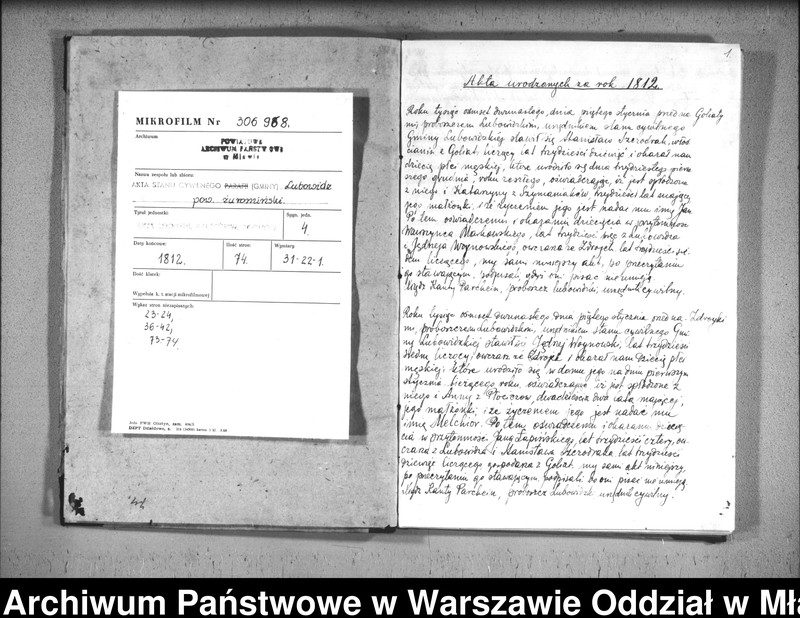 MIKROFILM Nr 306 968.
Archiwum
POWIATOWE
ARCHIWUM PAŃSTWOWE
w Mławie
Nazwa zespołu lub zbioru:
AKTA STANU CYWILNEGO PARAFII (GMINY) Lubowidz
pow. żuromiński.
Tytuł jednostki:
Sygn. jedn.
4
Daty końcowe:
1812.
Ilość stron:
74.
Wymiary
31-22-1.
Ilość klatek:
Wypełnia k. i stacji mikrofilmowej
Wykaz stron niezapisanych:
23-24,
36-42,
73-74
1
Akta urodzonych za rok 1812.
Roku tysiąc osmset dwunastego, dnia piątego stycznia przed na Goliaty
mi, proboszczem Lubowidzkim, urzędnikiem stanu cywilnego
Gminy Lubowidzkiej stawił się Stanisław Szczodrak, włoś
cianin z Goliat, liczący lat trzydzieści dziewięć i okazał nam
dziecię płci męskiej, które urodziło się dnia trzydziestego pierw
szego grudnia, roku zeszłego, oświadczając, iż jest spłodzone
z niego i Katarzyny z Szymaniaków, trzydzieści lat mającej
jego małżonki i że życzeniem jego jest nadać mu imię Jan
Po tem oświadczeniu i okazaniu dziecięcia w przytomności
Wawrzyńca Markowskiego, lat trzydzieści z Lubowidza
i Jędrzeja Woynowskiego, owczarza ze lat trzydzieści sie
dem liczącego, my sam niniejszy akt, po przeczytaniu
go stawającym, podpisali, gdyż oni pisać nie umieją.
Xiądz Kanty Parchem, proboszcz lubowidzki, urzędnik cywilny.
Roku tysiąc osmset dwunastego dnia piątego stycznia przed na
mi, proboszczem Lubowidzkim, urzędnikiem stanu cywilnego Gmi
ny Lubowidzkiej stawił się Jędrzej Woynowski, lat trzydzieści
siedm liczący, owczarz ze i okazał nam dziecię płci
męskiej, które urodziło się w domu jego na dniu pierwszym
stycznia bieżącego roku, oświadczając iż jest spłodzone z
niego i Anny z dwadzieścia dwa lata mającej,
jego małżonki, i że życzeniem jego jest nadać mu
imię Melchior. Po tem oświadczeniu i okazaniu dziecię
cia w przytomności Jana Łapińskiego, lat trzydzieści cztery, ow
czarza z Lubowidza i Stanisława Szczodraka lat trzydzieści
dziewięć liczącego gospodarza z Goliat, my sam akt niniejszy,
po przeczytaniu go stawającym, podpisali bo oni pisać nie umieją.
Xiądz Kanty Parchem, proboszcz Lubowidzki urzędnik cywilny.
Archiwum Państwowe w Warszawie Oddział w Mła